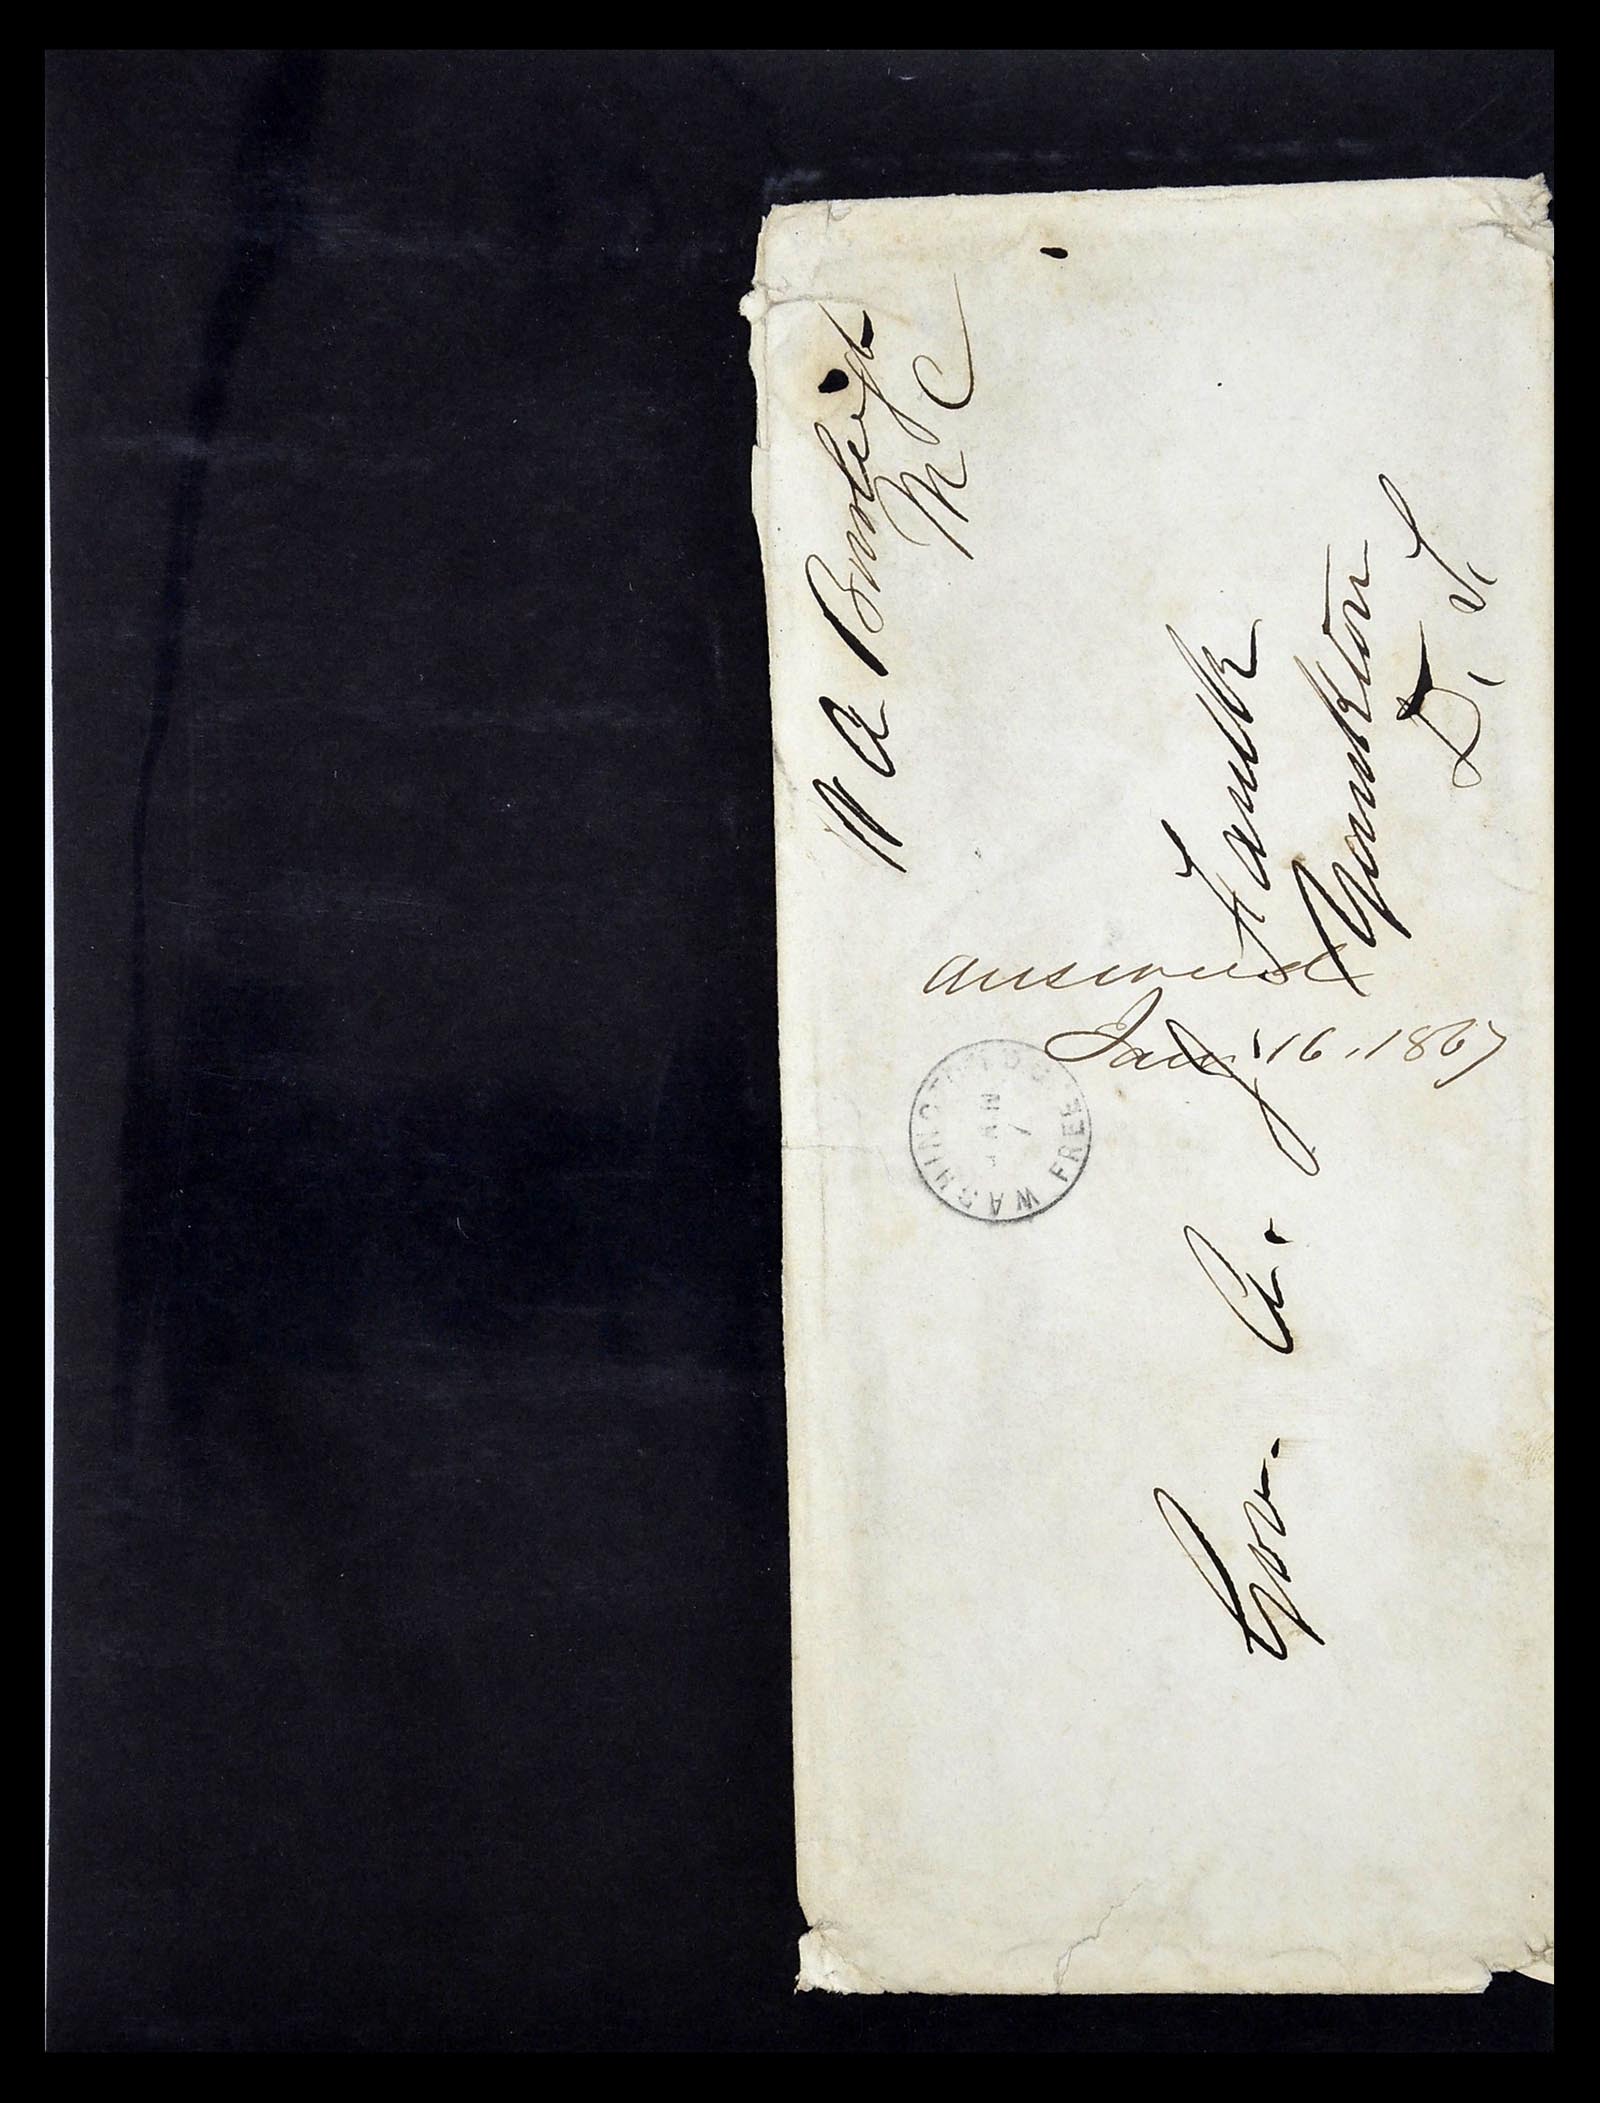 W A Burleigh
M C
WASHINGTON D.C.
JAN
FREE
answered
Jany 16, 1867
Gov. A. J Faulk
Yankton
D. T.